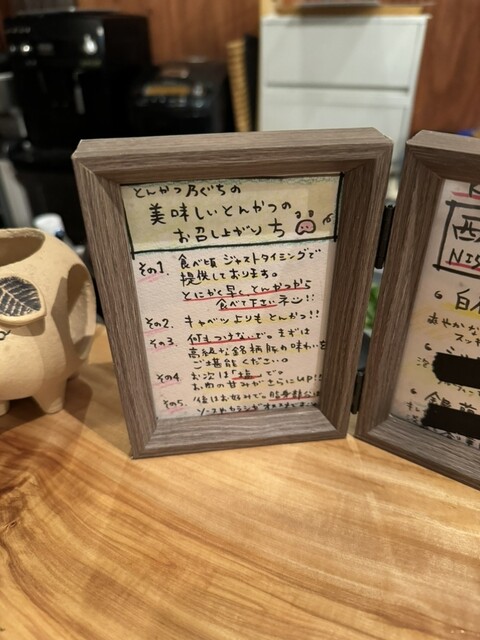 とんかつ乃ぐちの
美味しいとんかつの
お召し上がり方
その1. 食べ頃 ジャストタイミングで
提供しております。
とにかく早く、とんかつから
食べて下さいネ!!
その2. キャベツよりもとんかつ!!
その3. 何もつけないで。まずは
高級な銘柄豚の味わいを
ご堪能ください。
その4 お次は「塩」で。
お肉の甘みがさらにUP!!
その5. 後はお好みで。
ソースやカラシで
西
NIS